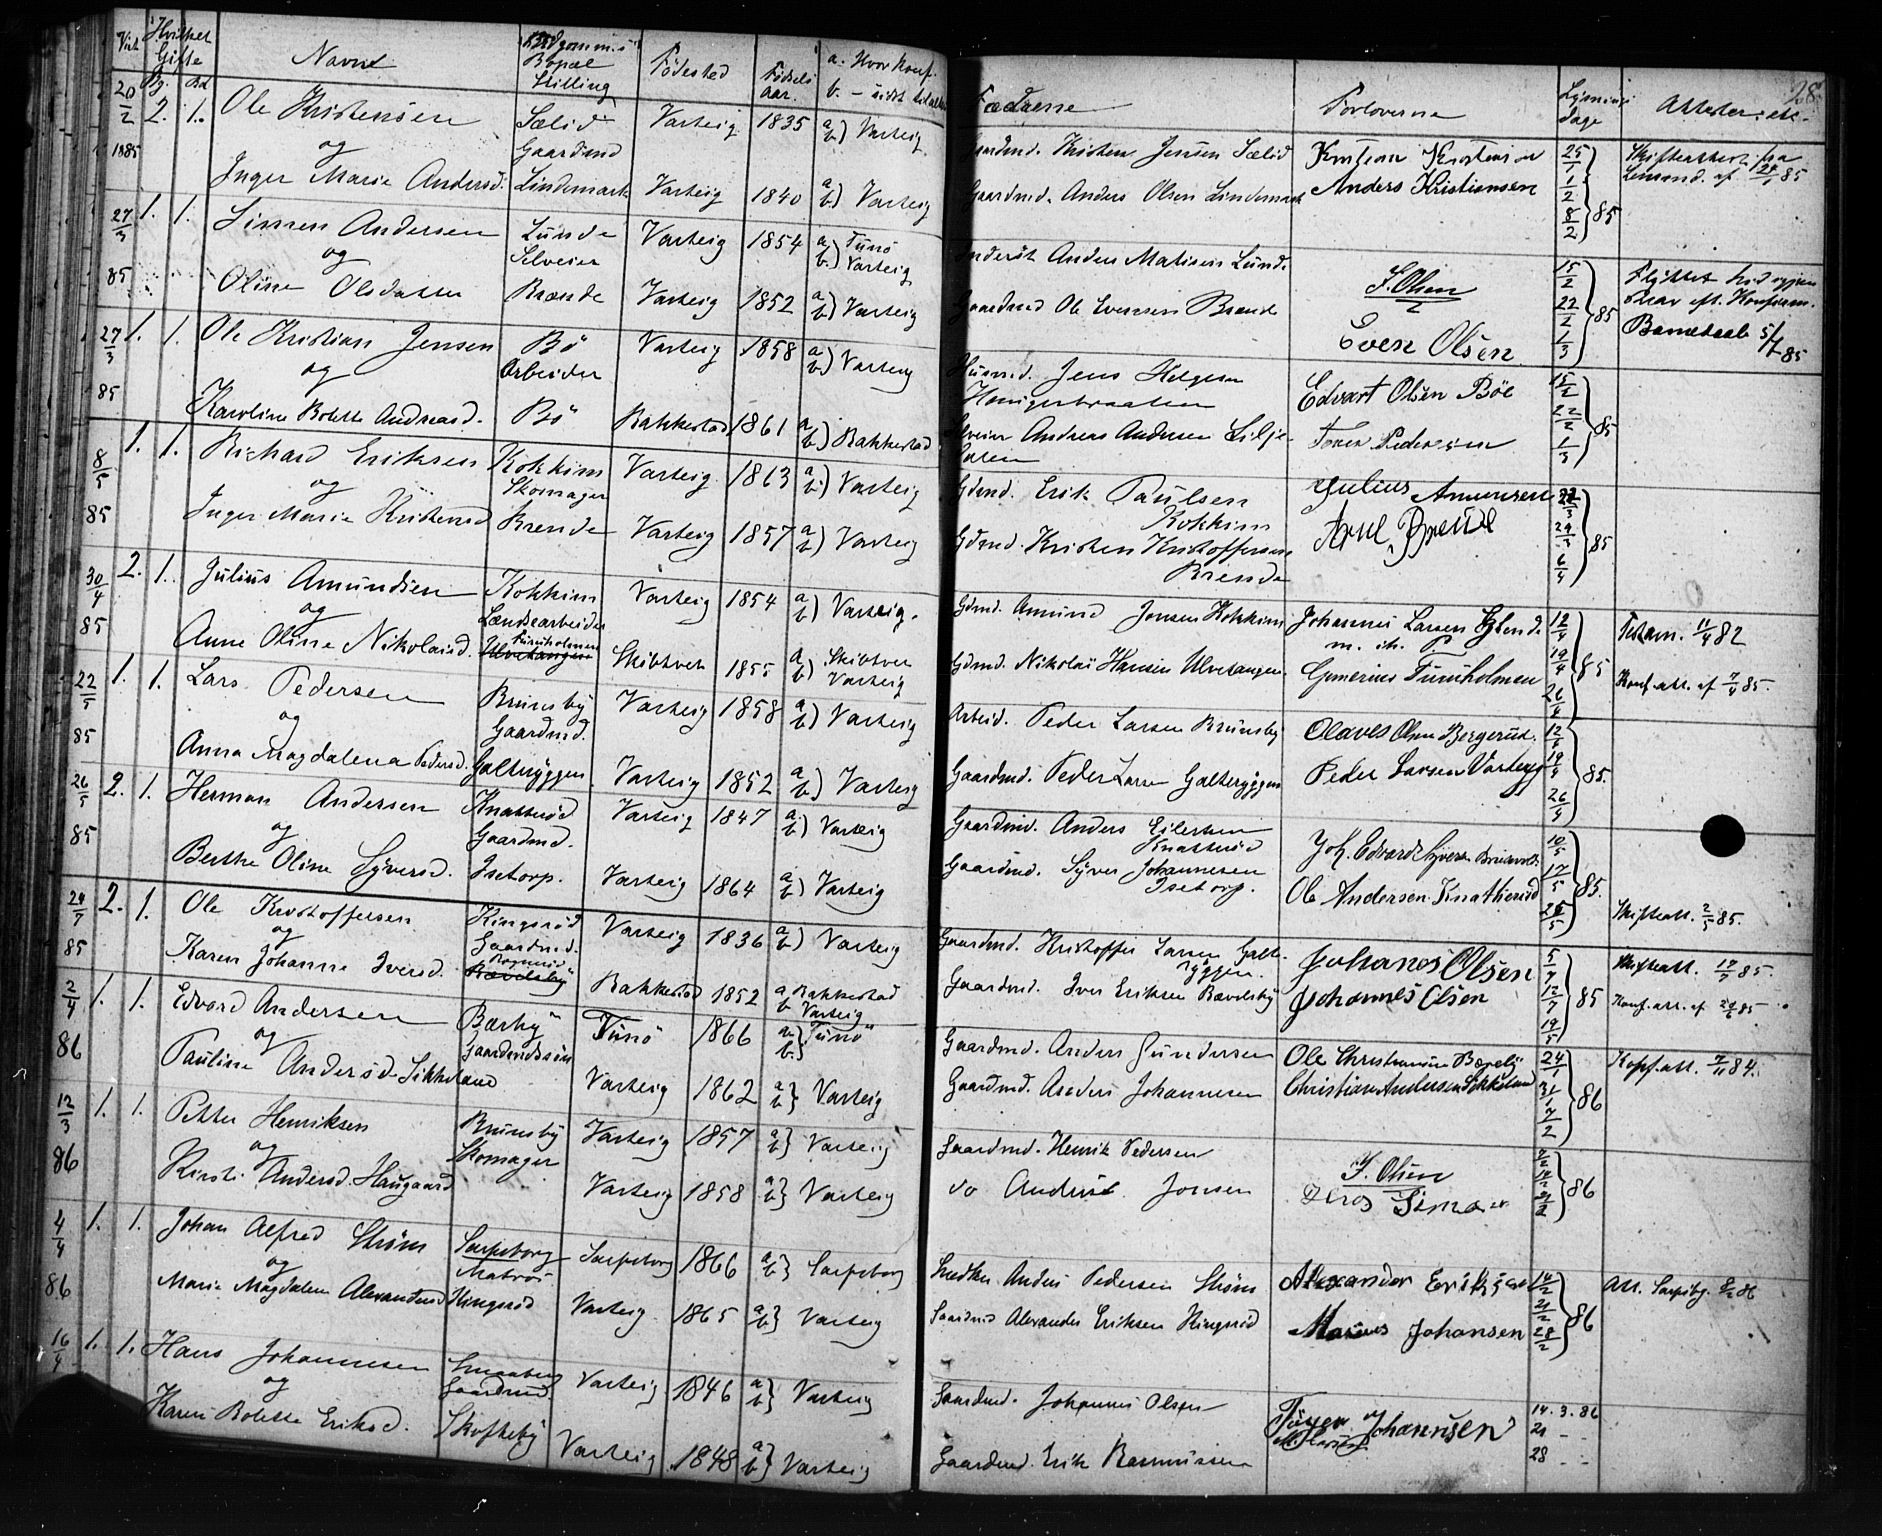 28.
Viet Hvilket Gifte Bg. Bd Navne Brudgommens Bopæl Stilling Fødested Fødsels aar. a. Hvor Konf. b. - sidst Fædrene Forloverne Lysnings dage Attester etc.
20/2 2. 1. Ole Kristensen Sælid Gaardmd Varteig 1835 a b) Varteig Gaardmd. Kristen Jensen Sælid Kristian Kristiansen 25/1 1/2 8/2 } 85 Skifteattest fra Lensmd. af 85
1885 og
Inger Marie Andersd. Lindemark Varteig 1840 a b) Varteig Gaardmd. Anders Olsen Lindemark Anders Kristiansen
27/3 1. 1. Simen Andersen Lunde Selveier Varteig 1854 a b) Tunø Varteig Inderst Anders Matisen Lunde J. Olsen 15/2 22/2 1/3 } 85 Flyttet hid igjen strax eft. Konfirm.
85 og
Oline Olsdatter Brænde Varteig 1852 a b) Varteig Gaardmd Ole Evensen Brænde Even Olsen Barnedaab 5/7 85
27/3 1. 1. Ole Kristian Jensen Bø Arbeider Varteig 1858 a b) Varteig Husmd. Jens Helgesen Edvart Olsen Bøe 15/2 22/2 1/3 } 85
85 og
Karoline Bolette Andreasd. Bø Rakkestad 1861 a b) Rakkestad Selveier Andreas Andersen Lilje- Pedersen
8/5 1. 1. Richard Eriksen Kokkim Skomager Varteig 1863 a b) Varteig Gdmd. Erik Paulsen Kokkim Julius Amunsen 29/3 6/4 } 85
85 og
Inger Marie Kristensd Brende Varteig 1857 a b) Varteig Gdmd. Kristen Kristoffersen Brende Brende
30/4 2. 1. Julius Amundsen Kokkim Landsearbeider Varteig 1854 a b) Varteig. Gdmd. Amund Jensen Kokkim Johannes Larsen m. ih. P. 12/4 19/4 26/4 } 85 Testam. 11/4 82
85 og
Anne Oline Nikolaisd. Furuholmen Skibtvet 1855 a b) Skibtvet Varteig Gdmd. Nikolai Hansen Ulvetangen Gunerius Furuholmen Konf.att. af 7/4 85.
22/5 1. 1. Lars Pedersen Brunsby Gaardmd. Varteig 1858 a b) Varteig Arbeid. Peder Larsen Brunsby Olaves Olsen Bergerud. 12/4 19/4 26/4 } 85.
85 og
Anna Magdalena Pedersd. Galteryggen Varteig 1852 a b) Varteig Gaardmd. Peder Larsen Galteryggen Peder Larsen Varteig
26/5 2. 1. Herman Andersen Knatterød Gaardmd. Varteig 1847 a b) Varteig Gaardmd. Anders Eilertsen Knatterød Joh. Edvard Syvers. 10/5 17/5 25/5 } 85.
85 og
Berthe Oline Syversd. Isetorp. Varteig 1864 a b) Varteig Gaardmd. Syver Johannesen Isetorp. Ole Andersen Knatterød Skifteatt. 2/5 85.
24/7 2. 1. Ole Kristoffersen Kingsrød Gaardmd. Varteig 1836 a b) Varteig Gaardmd. Kristoffer Larsen Galte- ryggen. Johanes Olsen 5/7 12/7 19/7 } 85 Skifteatt. 17/7 85.
85 og
Karen Johanne Iversd. Rævelsby Rakkestad 1852 a Rakkestad b Varteig Gaardmd. Iver Eriksen Rævelsby Johannes Olsen Konf.att. af 24/6 85
2/4 1. 1. Edvard Andersen Bærby Gaardmdssøn Tunø 1866 a b) Tunø Gaardmd. Anders Gundersen Ole Christiansen Bøgeby 24/1 31/1 7/2 } 86 Konf.att. 7/11 84.
86 og
Pauline Andersd. Sikkeland Varteig 1862 a b} Varteig Gaardmd. Anders Johannesen Christian Andersen Sikkeland
12/3 1. 1. Petter Henriksen Brunsby Skomager Varteig 1857 a b} Varteig Gaardmd. Henrik Pedersen J. Olsen 7/2 14/2 21/2 } 86
86 og
Kirsti Andersd. Haugaard Varteig 1858 a b} Varteig do Anders Jonsen
4/4 1. 1. Johan Alfred Strøm Sarpsborg Matros Sarpsborg 1866 a b} Sarpsborg Snedker Anders Pedersen Strøm Alexander Eriksen 14/2 21/2 28/2 } 86 Att. Sarpsbg. 8/2 86
86 og
Marie Magdalene Alexandersd Kingsrød Varteig 1865 a b} Varteig Gaardmd Alexander Eriksen Kingsrød Marius Johansen
16/4 1. 1. Hans Johannesen Smaaberg Gaardmd. Varteig 1846 a b} Varteig Gaardmd. Johannes Olsen Johannsen 14. 3. 86
og 21 - -
Karen Bolette Eriksd. Skofteby Varteig 1848 a b} Varteig Gaardmd. Erik Rasmussen 28 - -